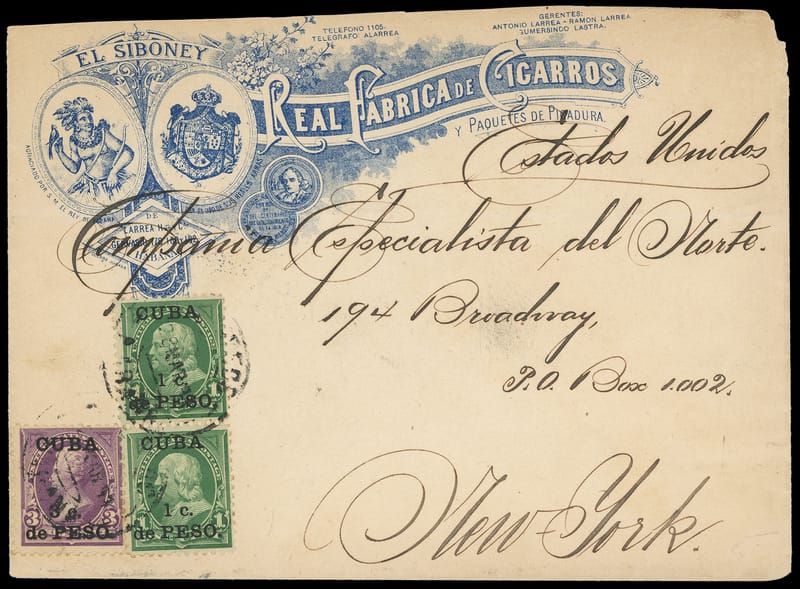 TELEFONO 1105.
TELEGRAFO ALARREA
GERENTES:
ANTONIO LARREA - RAMON LARREA
GUMERSINDO LASTRA.
EL SIBONEY
REAL FABRICA DE CIGARROS
Y PAQUETES DE PICADURA.
AGRACIADO POR S.M. EL REY DE ESPAÑA
DE
LARREA
HABANA
Estados Unidos
Compania Especialista del Norte.
194 Broadway,
P.O. Box 1.002.
New-York.
CUBA
1 c.
de PESO.
CUBA
3 c.
de PESO.
3
CUBA
1 c.
de PESO.